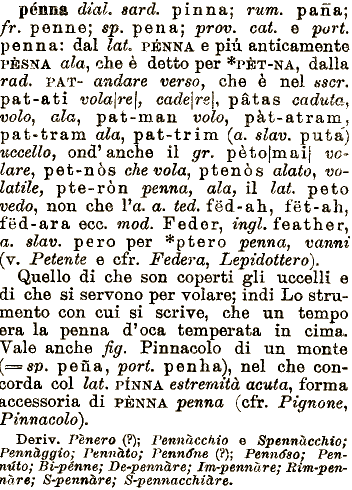 pénna dial. sard. pinna; rum. paña;
fr. penne; sp. pena; prov. cat. e port.
penna: dal lat. PÉNNA e piú anticamente
PÈSNA ala, che è detto per *PÈT-NA, dalla
rad. PAT- andare verso, che è nel sscr.
pat-ati vola|re|, cade|re|, pâtas caduta,
volo, ala, pat-man volo, pàt-atram,
pat-tram ala, pat-trim (a. slav. puta)
uccello, ond'anche il gr. pèto|mai| vo-
lare, pet-nòs che vola, ptenòs alato, vo-
latile, pte-ròn penna, ala, il lat. peto
vedo, non che l'a. a. ted. fëd-ah, fët-ah,
fëd-ara ecc. mod. Feder, ingl. feather,
a. slav. pero per *ptero penna, vanni
(v. Petente e cfr. Federa, Lepidottero).
Quello di che son coperti gli uccelli e
di che si servono per volare; indi Lo stru-
mento con cui si scrive, che un tempo
era la penna d'oca temperata in cima.
Vale anche fig. Pinnacolo di un monte
(= sp. peña, port. penha), nel che con-
corda col lat. PÍNNA estremità acuta, forma
accessoria di PÈNNA penna (cfr. Pignone,
Pinnacolo).
Deriv. Pènero (?); Pennàcchio e Spennàcchio;
Pennàggio; Pennàto; Pennóne (?); Pennóso; Pen-
núto; Bi-pénne; De-pennàre; Im-pennàre; Rim-pen-
nàre; S-pennàre; S-pennacchiàre.